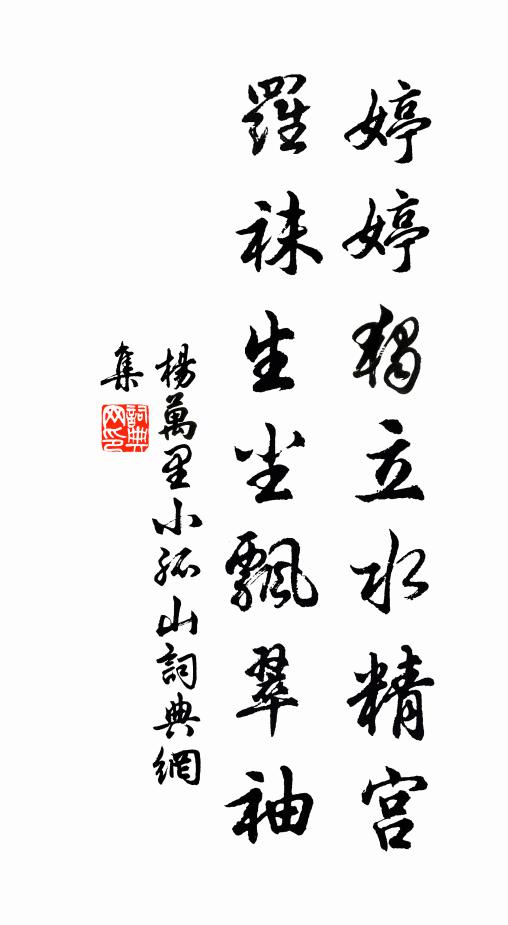 婷婷獨立水精宮
羅袜生尘飄翠袖
楊萬里小孤山詞典網
集
詞典
网印